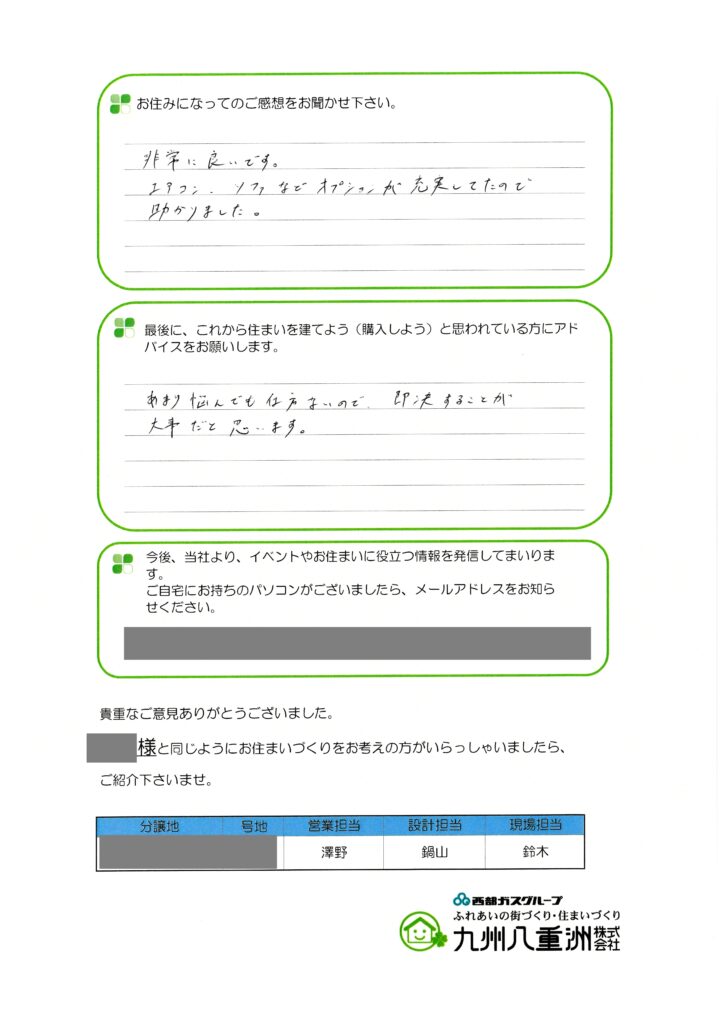 お住みになってのご感想をお聞かせ下さい。
非常に良いです。
エアコン、ソファなどオプションが充実してたので
助かりました。
最後に、これから住まいを建てよう（購入しよう）と思われている方にアド
バイスをお願いします。
あまり悩んでも仕方ないので、即決することが
大事だと思います。
今後、当社より、イベントやお住まいに役立つ情報を発信してまいりま
す。
ご自宅にお持ちのパソコンがございましたら、メールアドレスをお知ら
せください。
貴重なご意見ありがとうございました。
様と同じようにお住まいづくりをお考えの方がいらっしゃいましたら、
ご紹介下さいませ。
分譲地 号地 営業担当 設計担当 現場担当
澤野 鍋山 鈴木
西部ガスグループ
ふれあいの街づくり・住まいづくり
九州八重洲株式会社